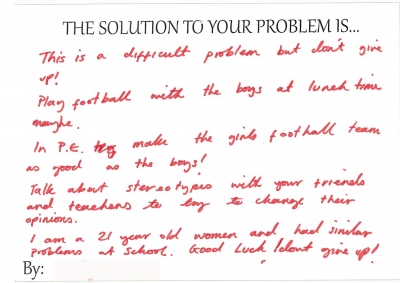 THE SOLUTION TO YOUR PROBLEM IS...
This is a difficult problem but don't give
up!
Play football with the boys at lunch time
maybe.
In P.E. try make the girls football team
as good as the boys!
Talk about stereotypes with your friends
and teachers to try to change their
opinions.
I am a 21 year old women and had similar
problems at school. Good Luck /dont give up!
By: